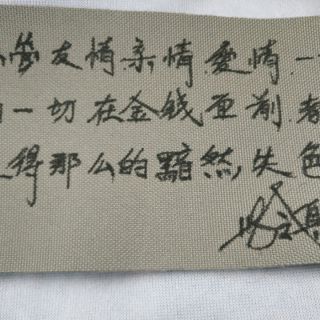 管友情亲情爱情一
一切在金钱面前都
得那么的黯然失色